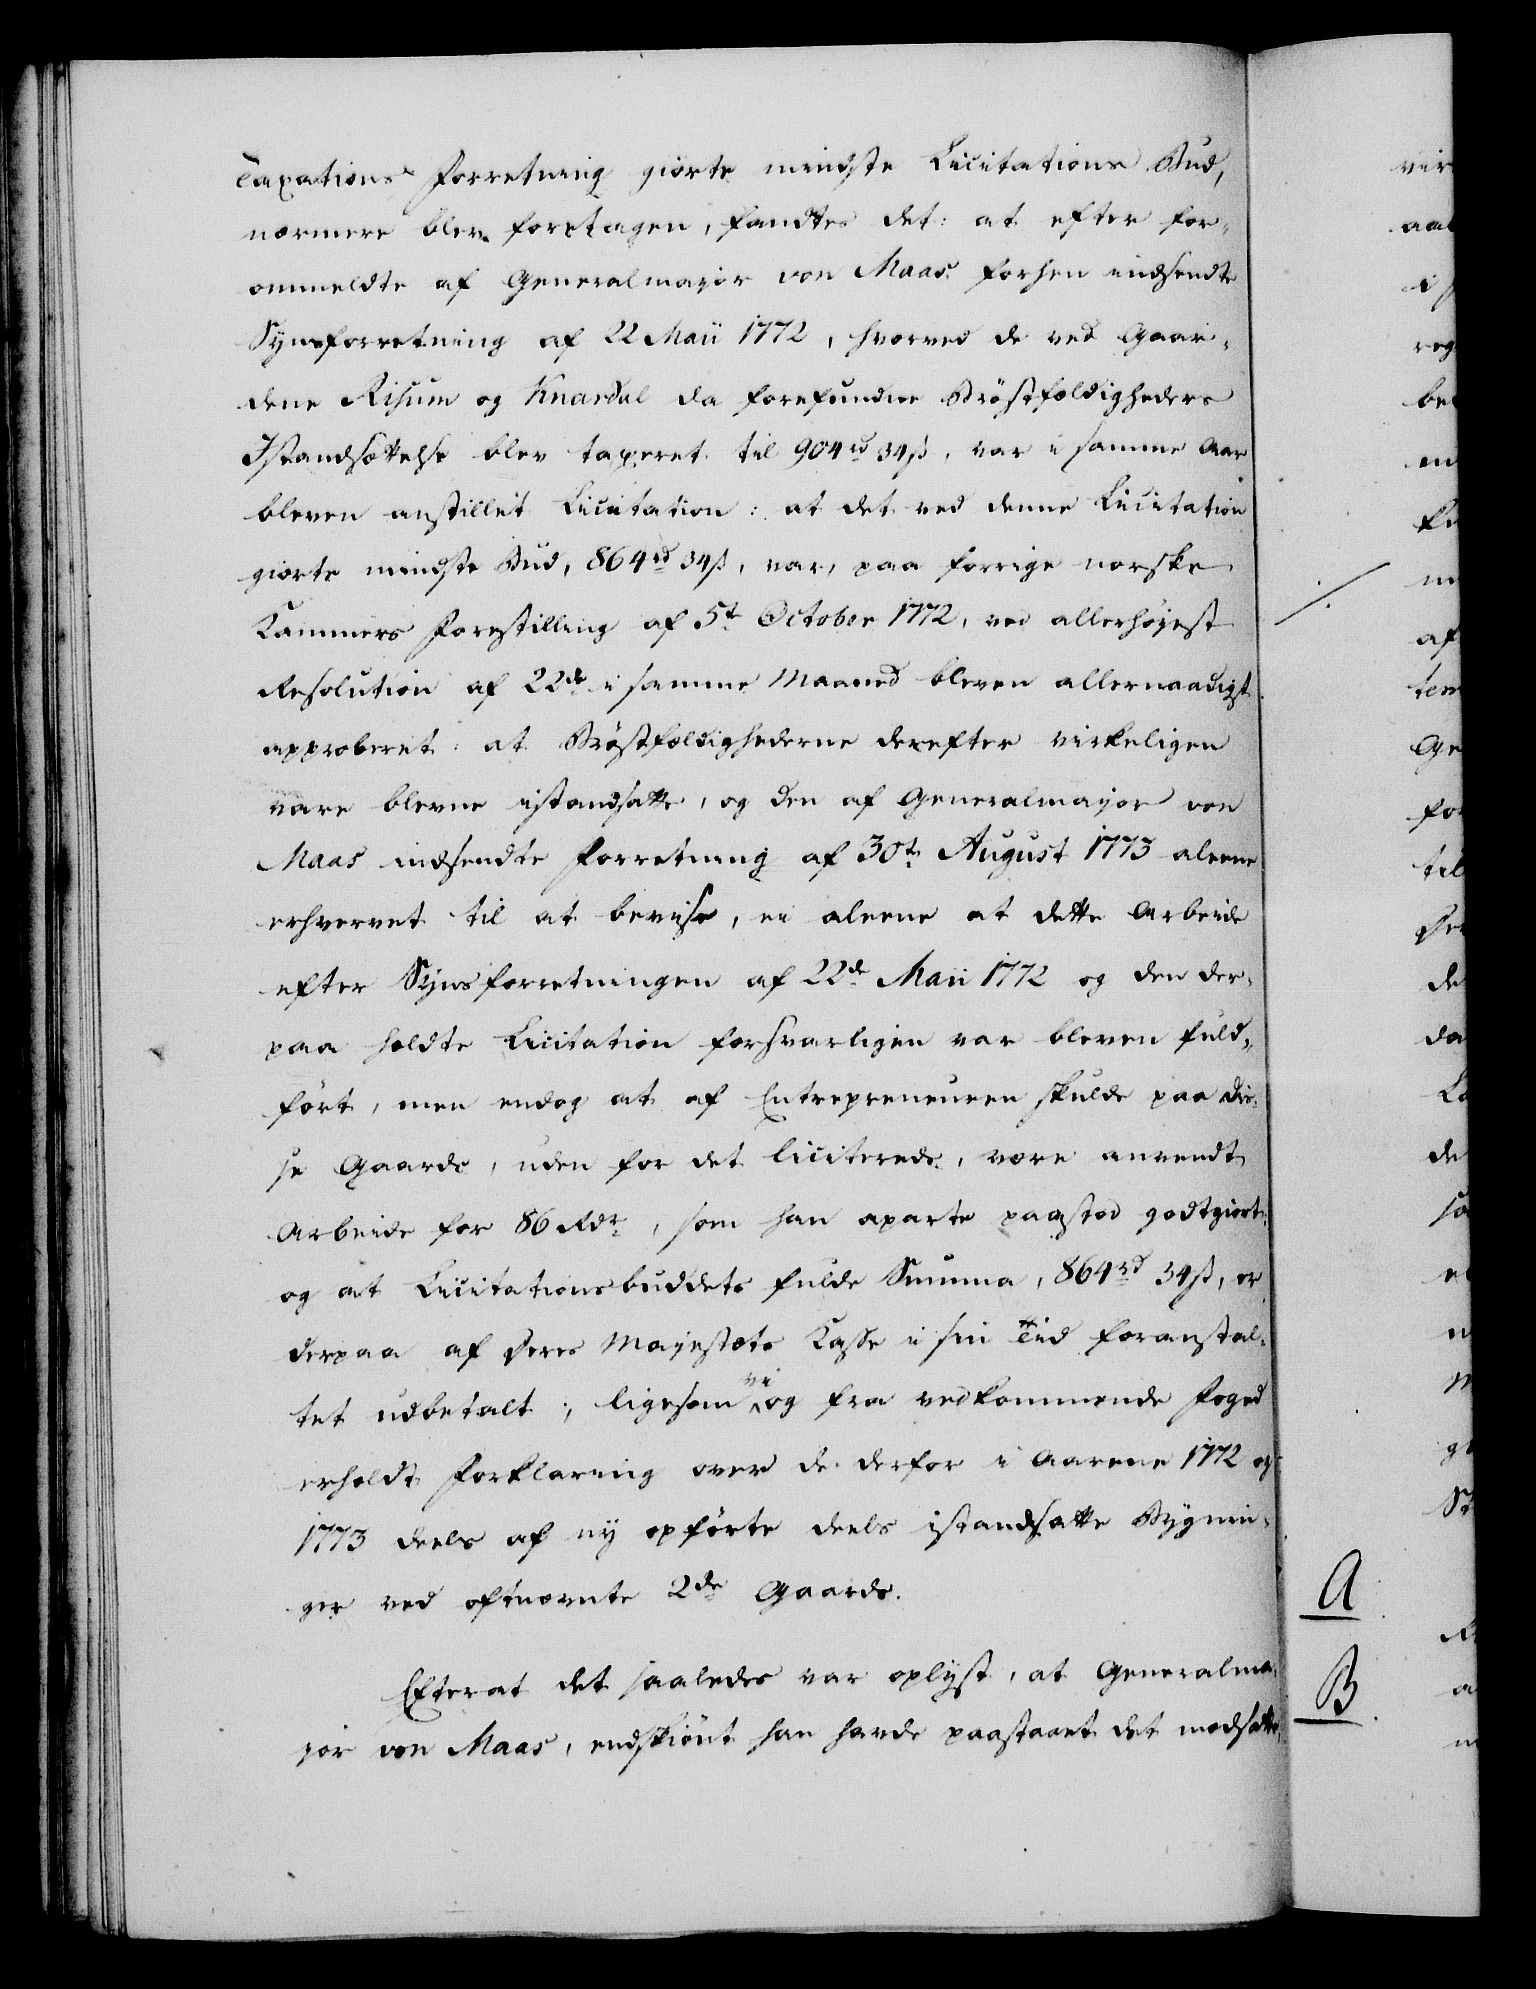 Taxations Forretning giorte mindste Licitations Bud,
nærmere blev foretagen, fandtes det: at efter for-
ommeldte af Generalmajor von Maas forhen indsendte
Synsforretning af 22 Maii 1772, hvorved de ved Gaar-
dene Risum og Knardal da forefundne Bröstfældigheders
Istandsættelse blev taxeret til 904 rd 34 ß, var i samme Aar
bleven anstillet Licitation: at det ved denne Licitation
giorte mindste Bud, 864 rd 34 ß, var, paa forrige norske
Kammers Forestilling af 5t October 1772, ved allerhöjest
Resolution af 22de i samme Maaned bleven allernaadigst
approberet: at Bröstfældighederne derefter virkeligen
vare blevne istandsatte, og den af Generalmajor von
Maas indsendte Forretning af 30te August 1773 aleene
erhvervet til at bevise, ei aleene at dette Arbeide
efter Synsforretningen af 22de Maii 1772 og den der-
paa holdte Licitation forsvarligen var bleven fuld-
fört, men endog at af Entrepreneuren skulde paa dis-
se Gaarde, uden for det liciterede, være anvendt
Arbeide for 86 Rdr, som han aparte paastod godtgiort:
og at Licitationsbuddets fulde Summa, 864 rd 34 ß, er
derpaa af Deres Majestæts Kasse i sin Tid foranstal-
tet udbetalt; ligesom vi og fra vedkommende Foged
erholdt Forklaring over de derfor i Aarene 1772 og
1773 deels af ny opförte deels istandsatte Bygnin-
ger ved oftnævnte 2de Gaarde.
Efterat det saaledes var oplyst, at Generalma-
jor von Maas, endskiönt han havde paastaaet det modsatte,
A
B